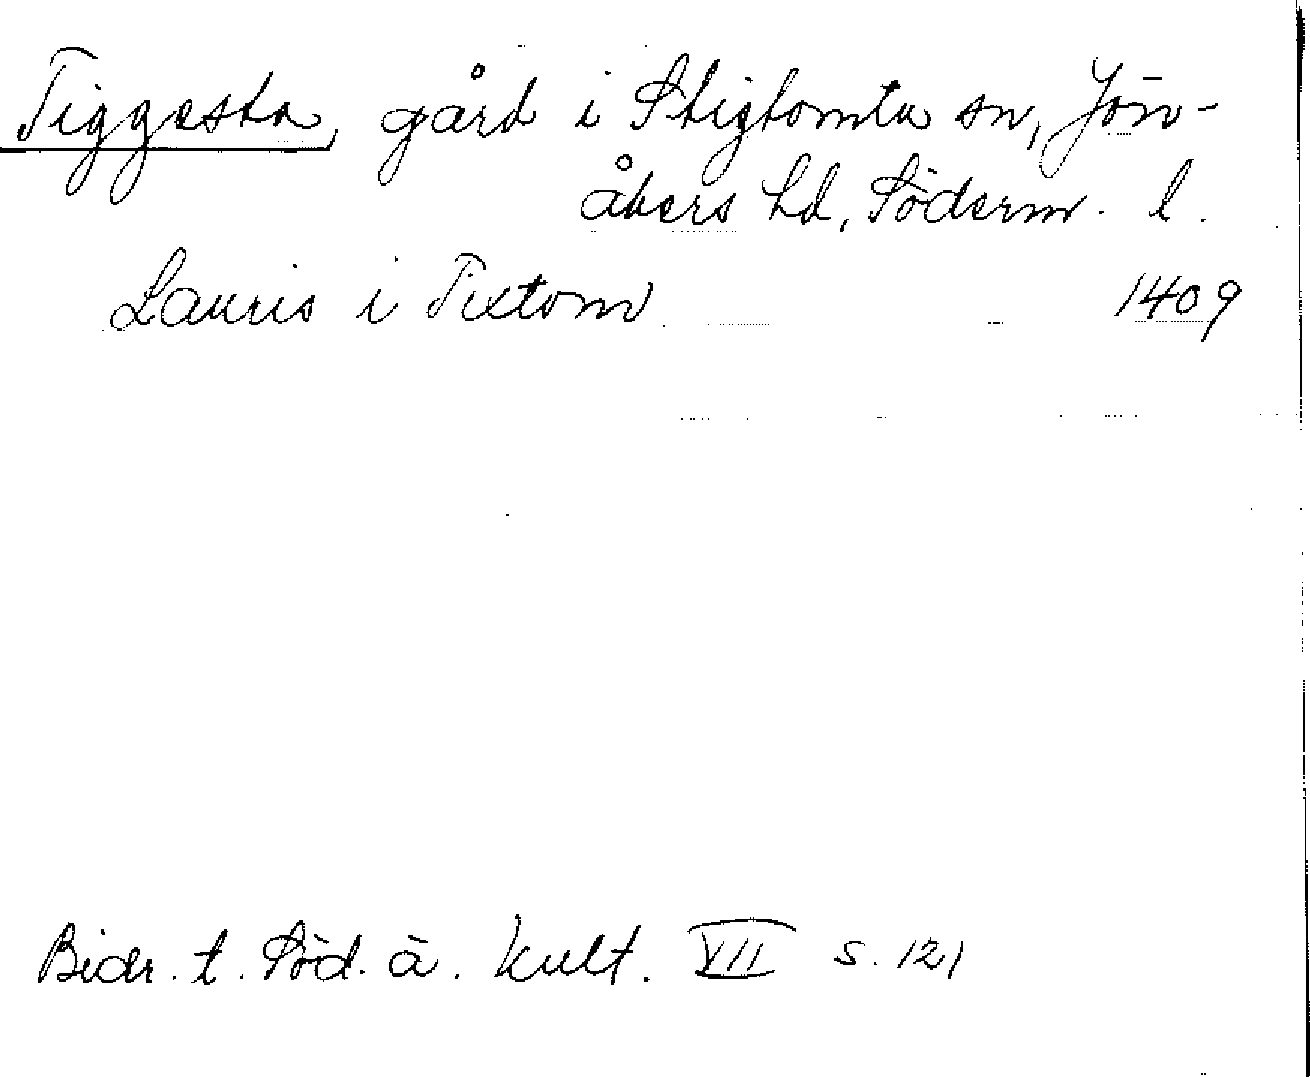 Tiggesta, gård i Stigtomta sn, Jön-
åkers hd, Söderm. l.
Lauris i Tixtom 1409
Bidr. t. Söd. ä. kult. VII s. 121